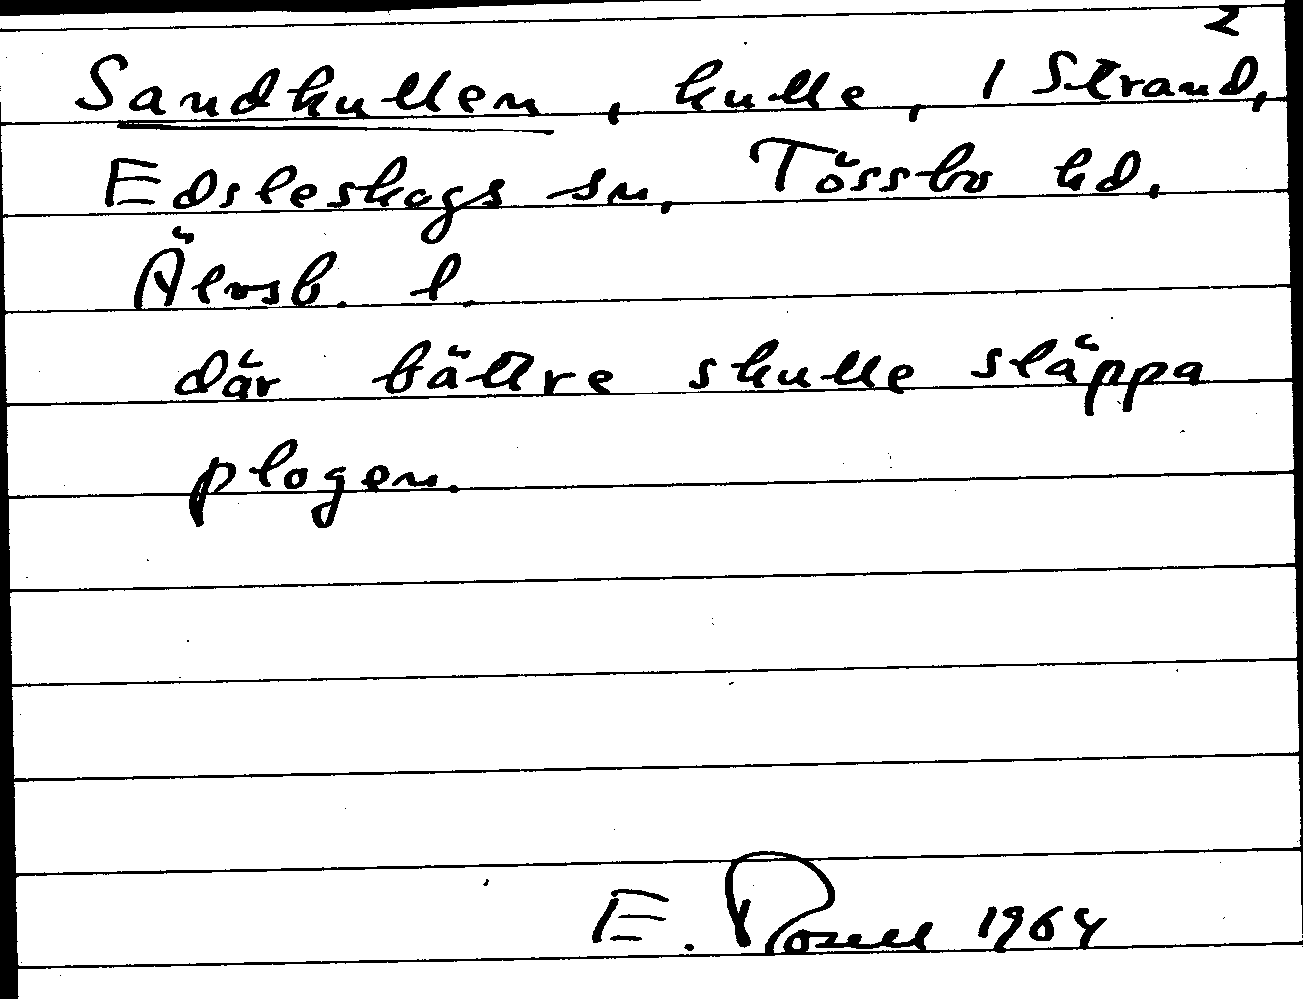 2
Sandkullen, kulle, 1 Strand,
Edsleskogs sn, Tössbo hd,
Älvsb. l.
där bättre skulle släppa
plogen.
E. Rosell 1964